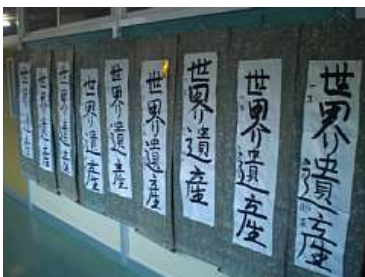 世界遺産
世界遺産
世界遺産
世界遺産
世界遺産
世界遺産
世界遺産
世界遺産
世界遺産